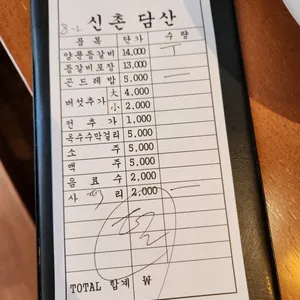 8-2
신촌 담산
품목 단가 수량
양푼등갈비 14,000 ㅜ
등갈비포장 13,000
곤드레밥 5,000 一
버섯추가 大 4,000
小 2,000
전추가 1,000
옥수수막걸리 5,000
소주 5,000
맥주 5,000
음료수 2,000
사리 2,000 一
TOTAL 합계 ₩